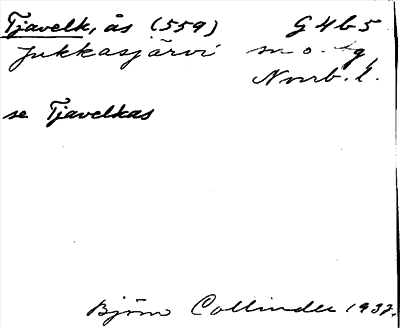 Tjavelk, ås (559) G4b5
Jukkasjärvi sn o. tg,
Norrb. l.
se Tjavelkas
Björn Collinder 1937.